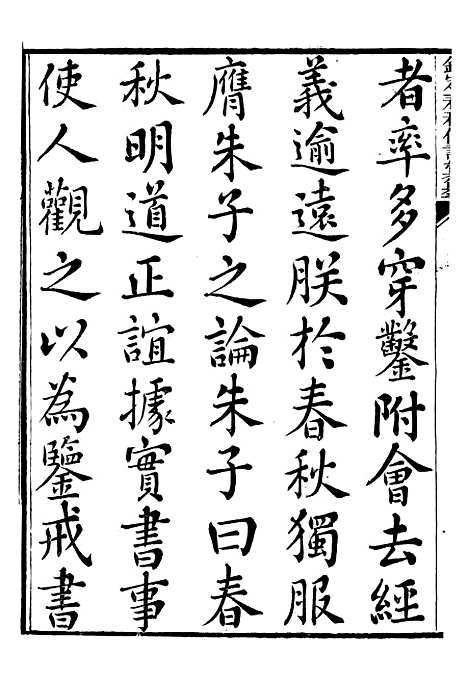 者率多穿鑿附會去經
義逾遠朕於春秋獨服
膺朱子之論朱子曰春
秋明道正誼據實書事
使人觀之以為鑒戒書